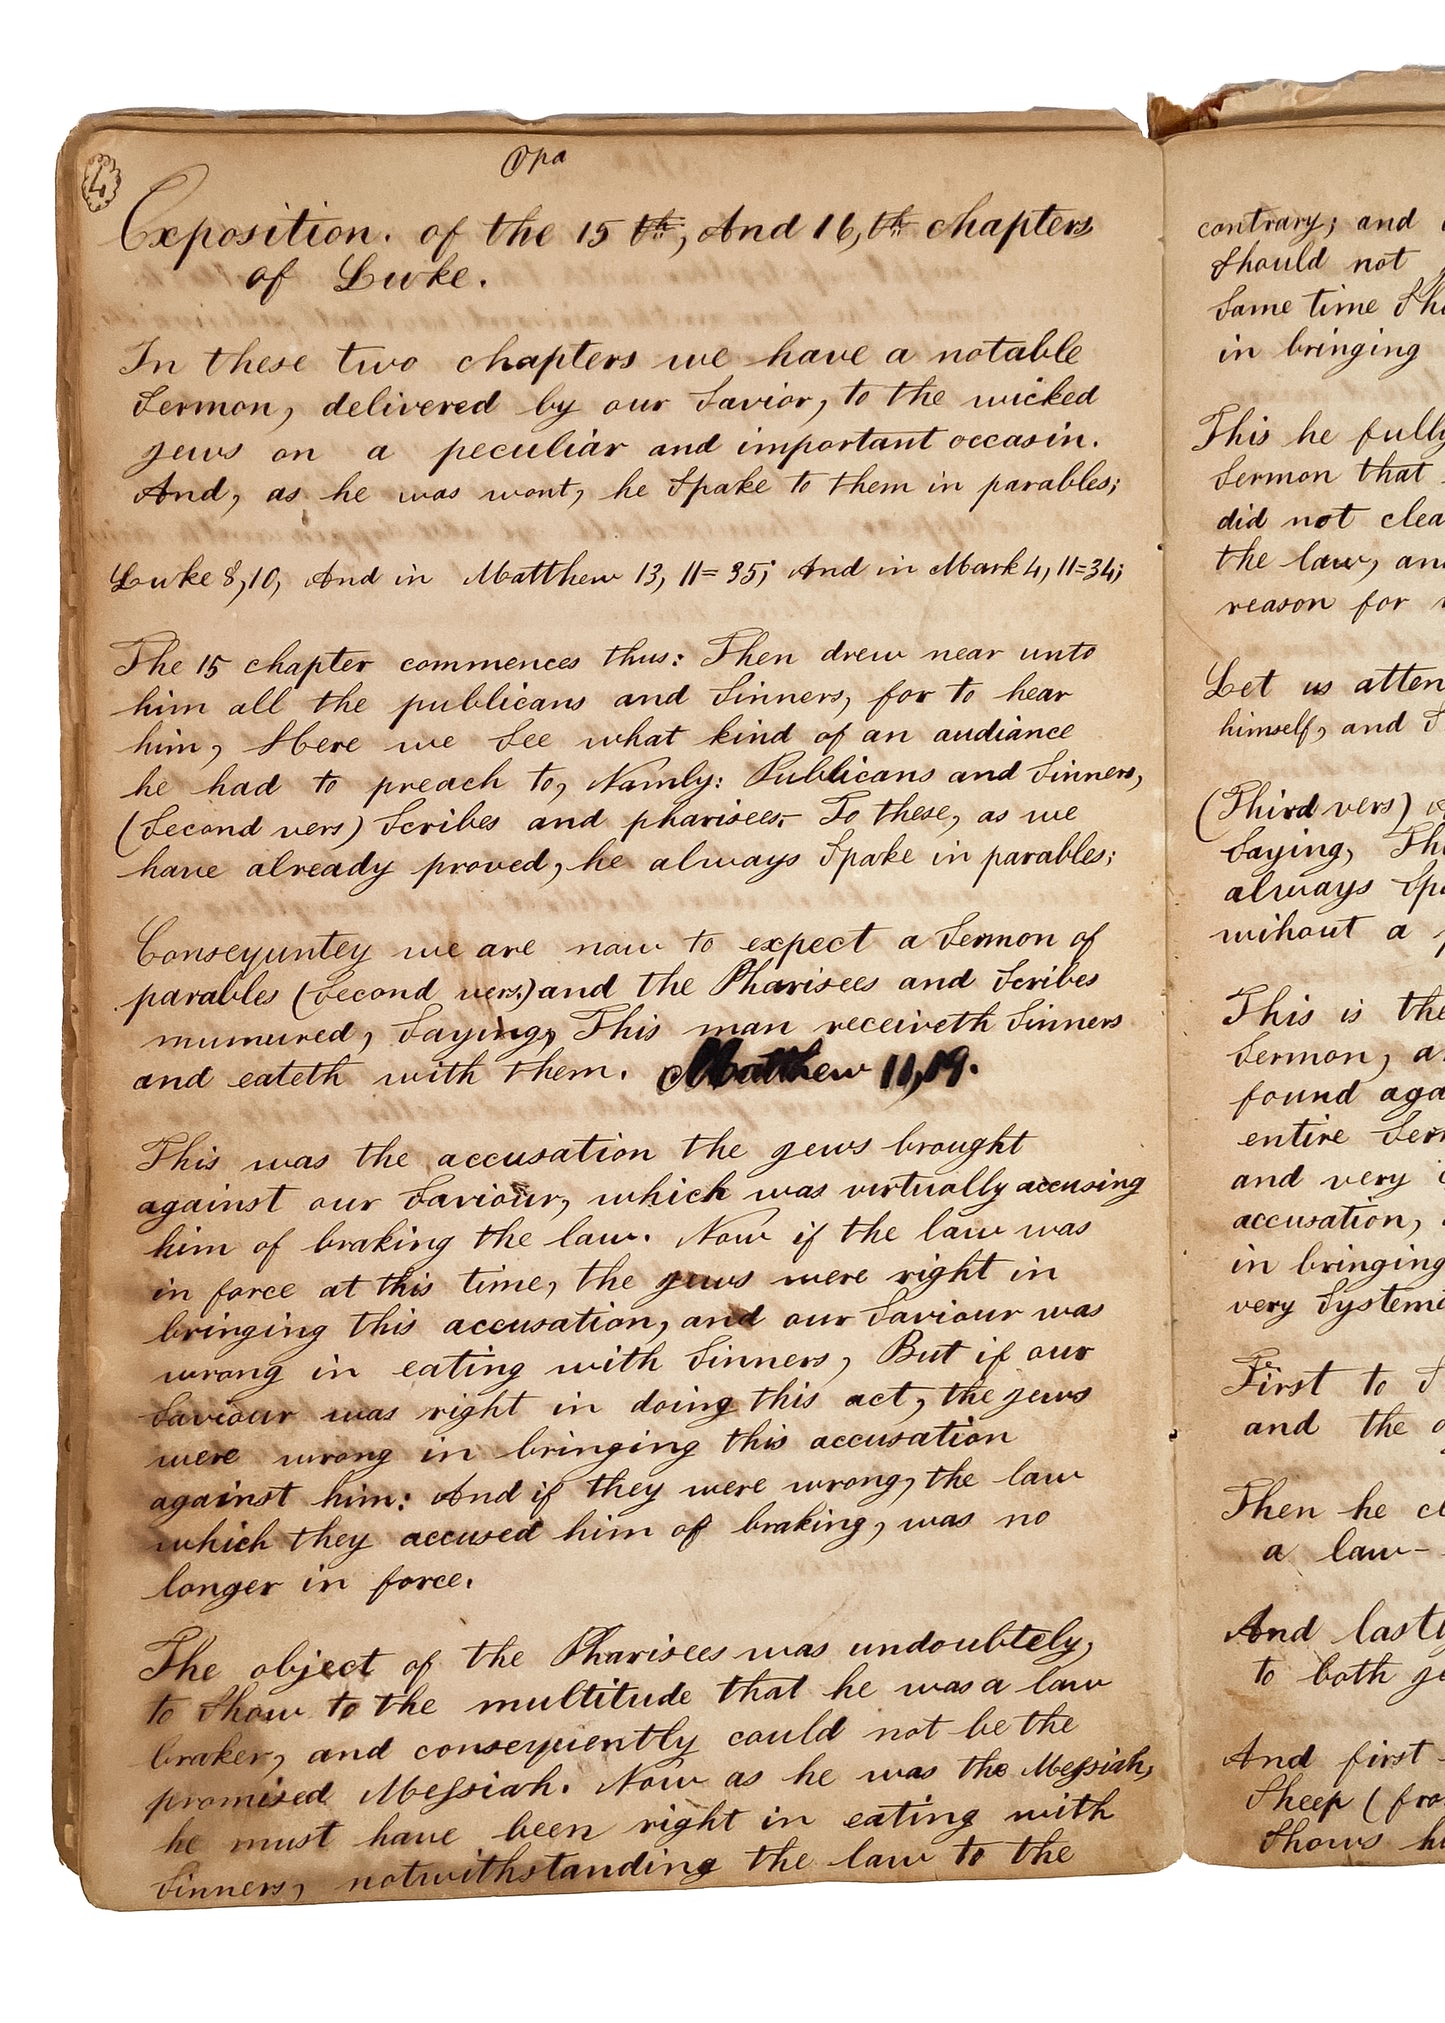 4
Opa
Exposition. of the 15 th, And 16, th chapters
of Luke.
In these two chapters we have a notable
Sermon, delivered by our Savior, to the wicked
jews on a peculiar and important occasin.
And, as he was wont, he Spake to them in parables;
Luke 8,10, And in Matthew 13, 11=35; And in Mark 4, 11=34;
The 15 chapter commences thus: Then drew near unto
him all the publicans and Sinners, for to hear
him, Here we See what kind of an audiance
he had to preach to, Namly: Publicans and Sinners,
(Second vers) Scribes and pharisees- To these, as we
have already proved, he always Spake in parables;
Conseyuntey we are now to expect a Sermon of
parables (Second vers,) and the Pharisees and Scribes
mumured, Saying, This man receiveth Sinners
and eateth with them. Matthew 11,19.
This was the accusation the jews brought
against our Saviour, which was virtually accusing
him of braking the law. Now if the law was
in force at this time, the jews were right in
bringing this accusation, and our Saviour was
wrong in eating with Sinners, But if our
Saviour was right in doing this act, the jews
were wrong in bringing this accusation
against him: And if they were wrong, the law
which they accused him of braking, was no
longer in force.
The object of the Pharisees was undoubtely,
to Show to the multitude that he was a law
braker, and conseyuently could not be the
promised Messiah. Now as he was the Messiah,
he must have been right in eating with
Sinners, notwithstanding the law to the
contrary; and
Should not
Same time
in bringing
This he fully
Sermon that
did not
the law,
reason for
Let us
himself, and
(Third vers)
Saying,
always
wihout a
This is the
Sermon,
found
entire
and very
accusation,
in bringing
very
First to
and the
Then he
a law-
And lastly
to both
And first
Sheep
Shows